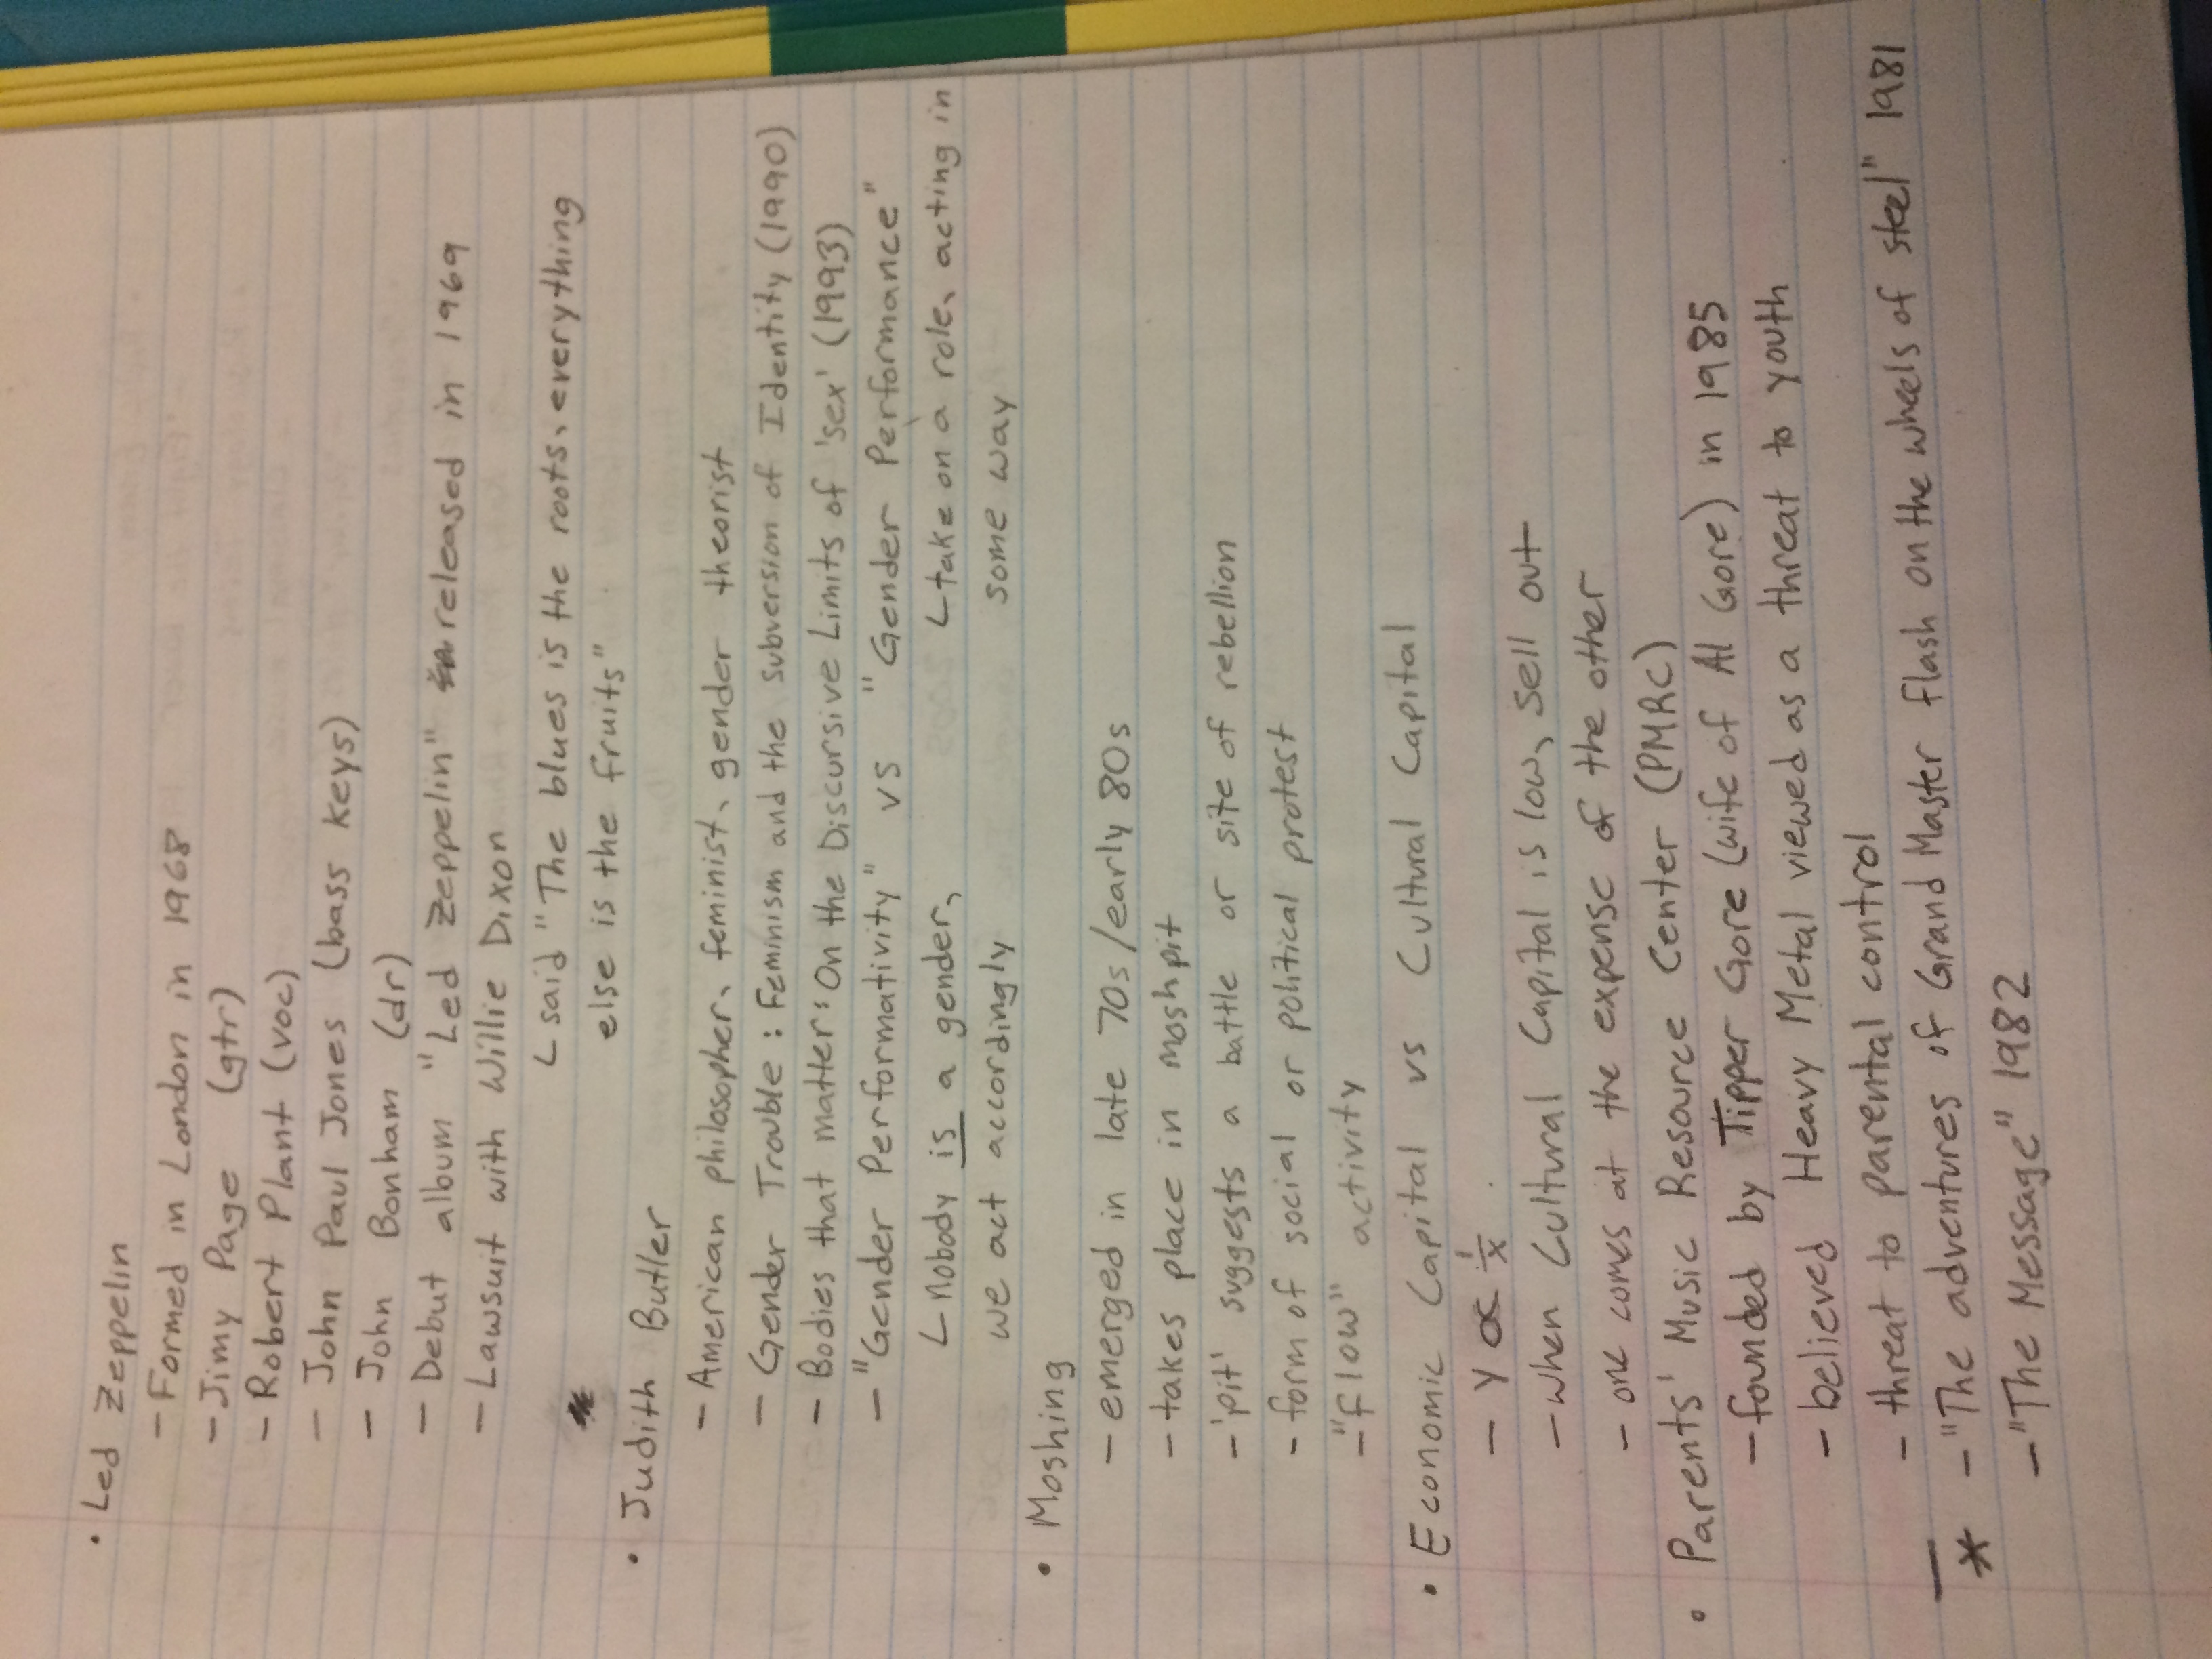 • Led Zeppelin
- Formed in London in 1968
- Jimy Page (gtr)
- Robert Plant (voc)
- John Paul Jones (bass keys)
- John Bonham (dr)
- Debut album "Led Zeppelin" released in 1969
- Lawsuit with Willie Dixon
L said "The blues is the roots, everything
else is the fruits"
• Judith Butler
- American philosopher, feminist, gender theorist
- Gender Trouble: Feminism and the subversion of Identity (1990)
- Bodies that matter: On the Discursive Limits of 'sex' (1993)
- "Gender Performativity" vs "Gender Performance"
L Nobody is a gender, L take on a role, acting in
we act accordingly some way
• Moshing
- emerged in late 70s/early 80s
- takes place in moshpit
- 'pit' suggests a battle or site of rebellion
- form of social or political protest
- "flow" activity
• Economic Capital vs Cultural Capital
- y ∝ 1/x
- when Cultural Capital is low, sell out
- one comes at the expense of the other
• Parents' Music Resource Center (PMRC)
- founded by Tipper Gore (wife of Al Gore) in 1985
- believed Heavy Metal viewed as a threat to youth
- threat to parental control
* - "The adventures of Grand Master flash on the wheels of steel" 1981
- "The Message" 1982